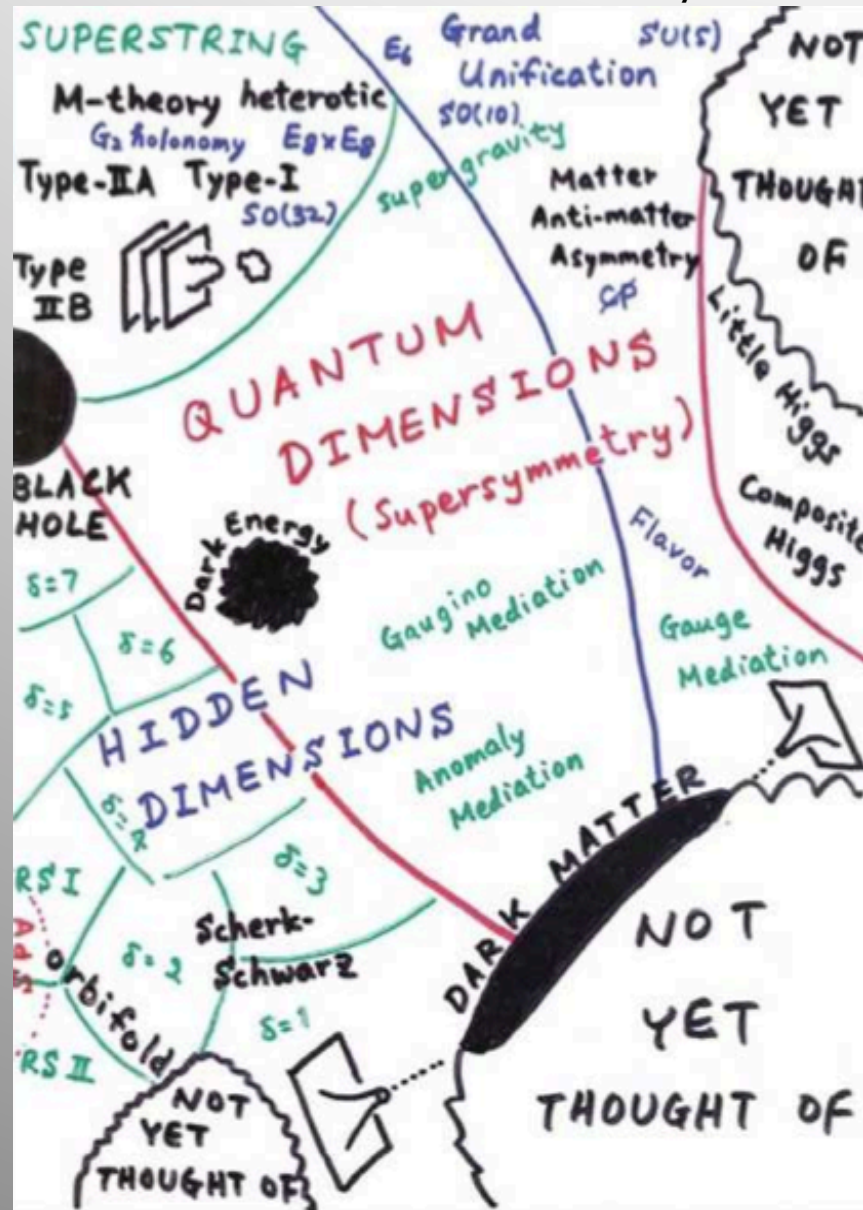 SUPERSTRING
M-theory heterotic
G₂ holonomy E₈xE₈
Type-IIA Type-I
SO(32)
Type
IIB
E₆
Grand
Unification
SU(5)
SO(10)
super gravity
Matter
Anti-matter
Asymmetry
CP
NOT
YET
THOUGHT
OF
Little Higgs
Composite
Higgs
QUANTUM
DIMENSIONS
(Supersymmetry)
BLACK
HOLE
Dark Energy
Flavor
Gaugino
Mediation
Gauge
Mediation
δ=7
δ=6
δ=5
HIDDEN
DIMENSIONS
Anomaly
Mediation
δ=3
RS I
AdS
orbifold
δ=2
Scherk-
Schwarz
δ=1
RS II
DARK MATTER
NOT
YET
THOUGHT OF
NOT
YET
THOUGHT OF